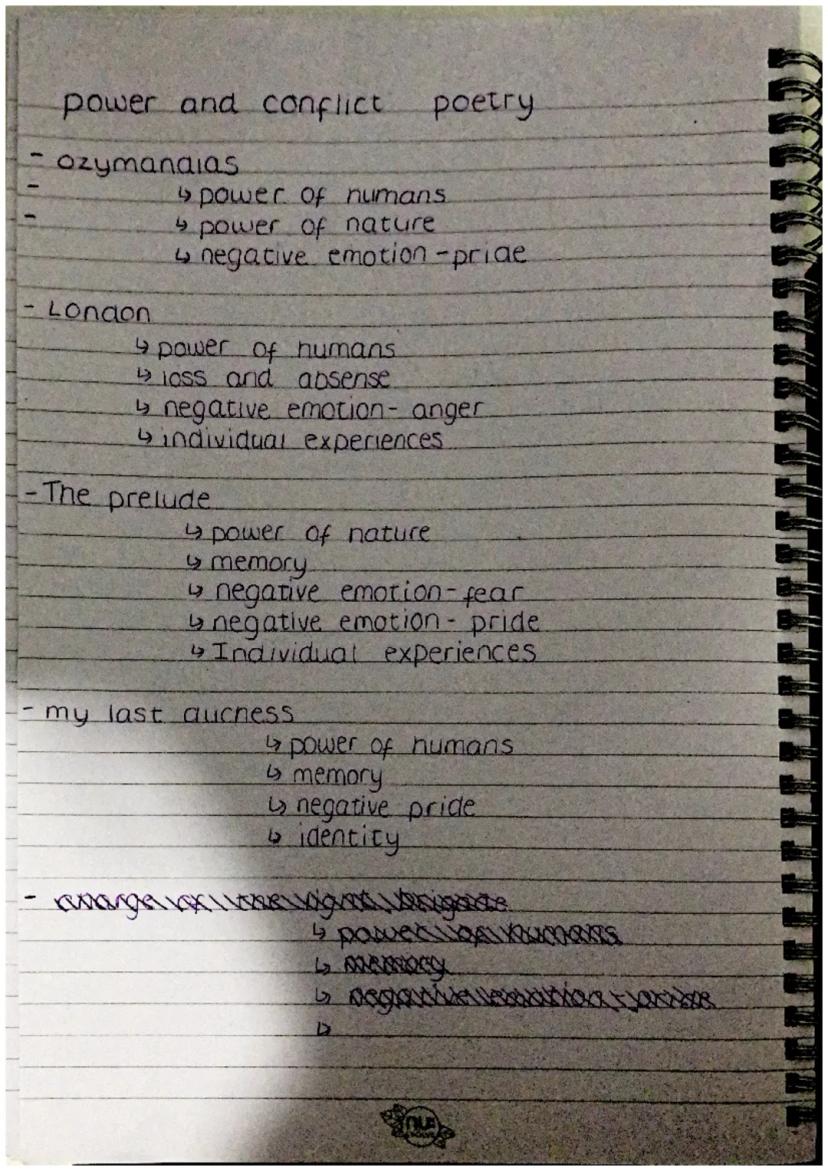 power and conflict poetry
- ozymandias
- ↳ power of humans
- ↳ power of nature
↳ negative emotion - pride
- London
↳ power of humans
↳ loss and absense
↳ negative emotion - anger
↳ individual experiences
- The prelude
↳ power of nature
↳ memory
↳ negative emotion - fear
↳ negative emotion - pride
↳ Individual experiences
- my last duchess
↳ power of humans
↳ memory
↳ negative pride
↳ identity
- charge of the light brigade
↳ power of humans
↳ memory
↳ negative emotion - pride
↳